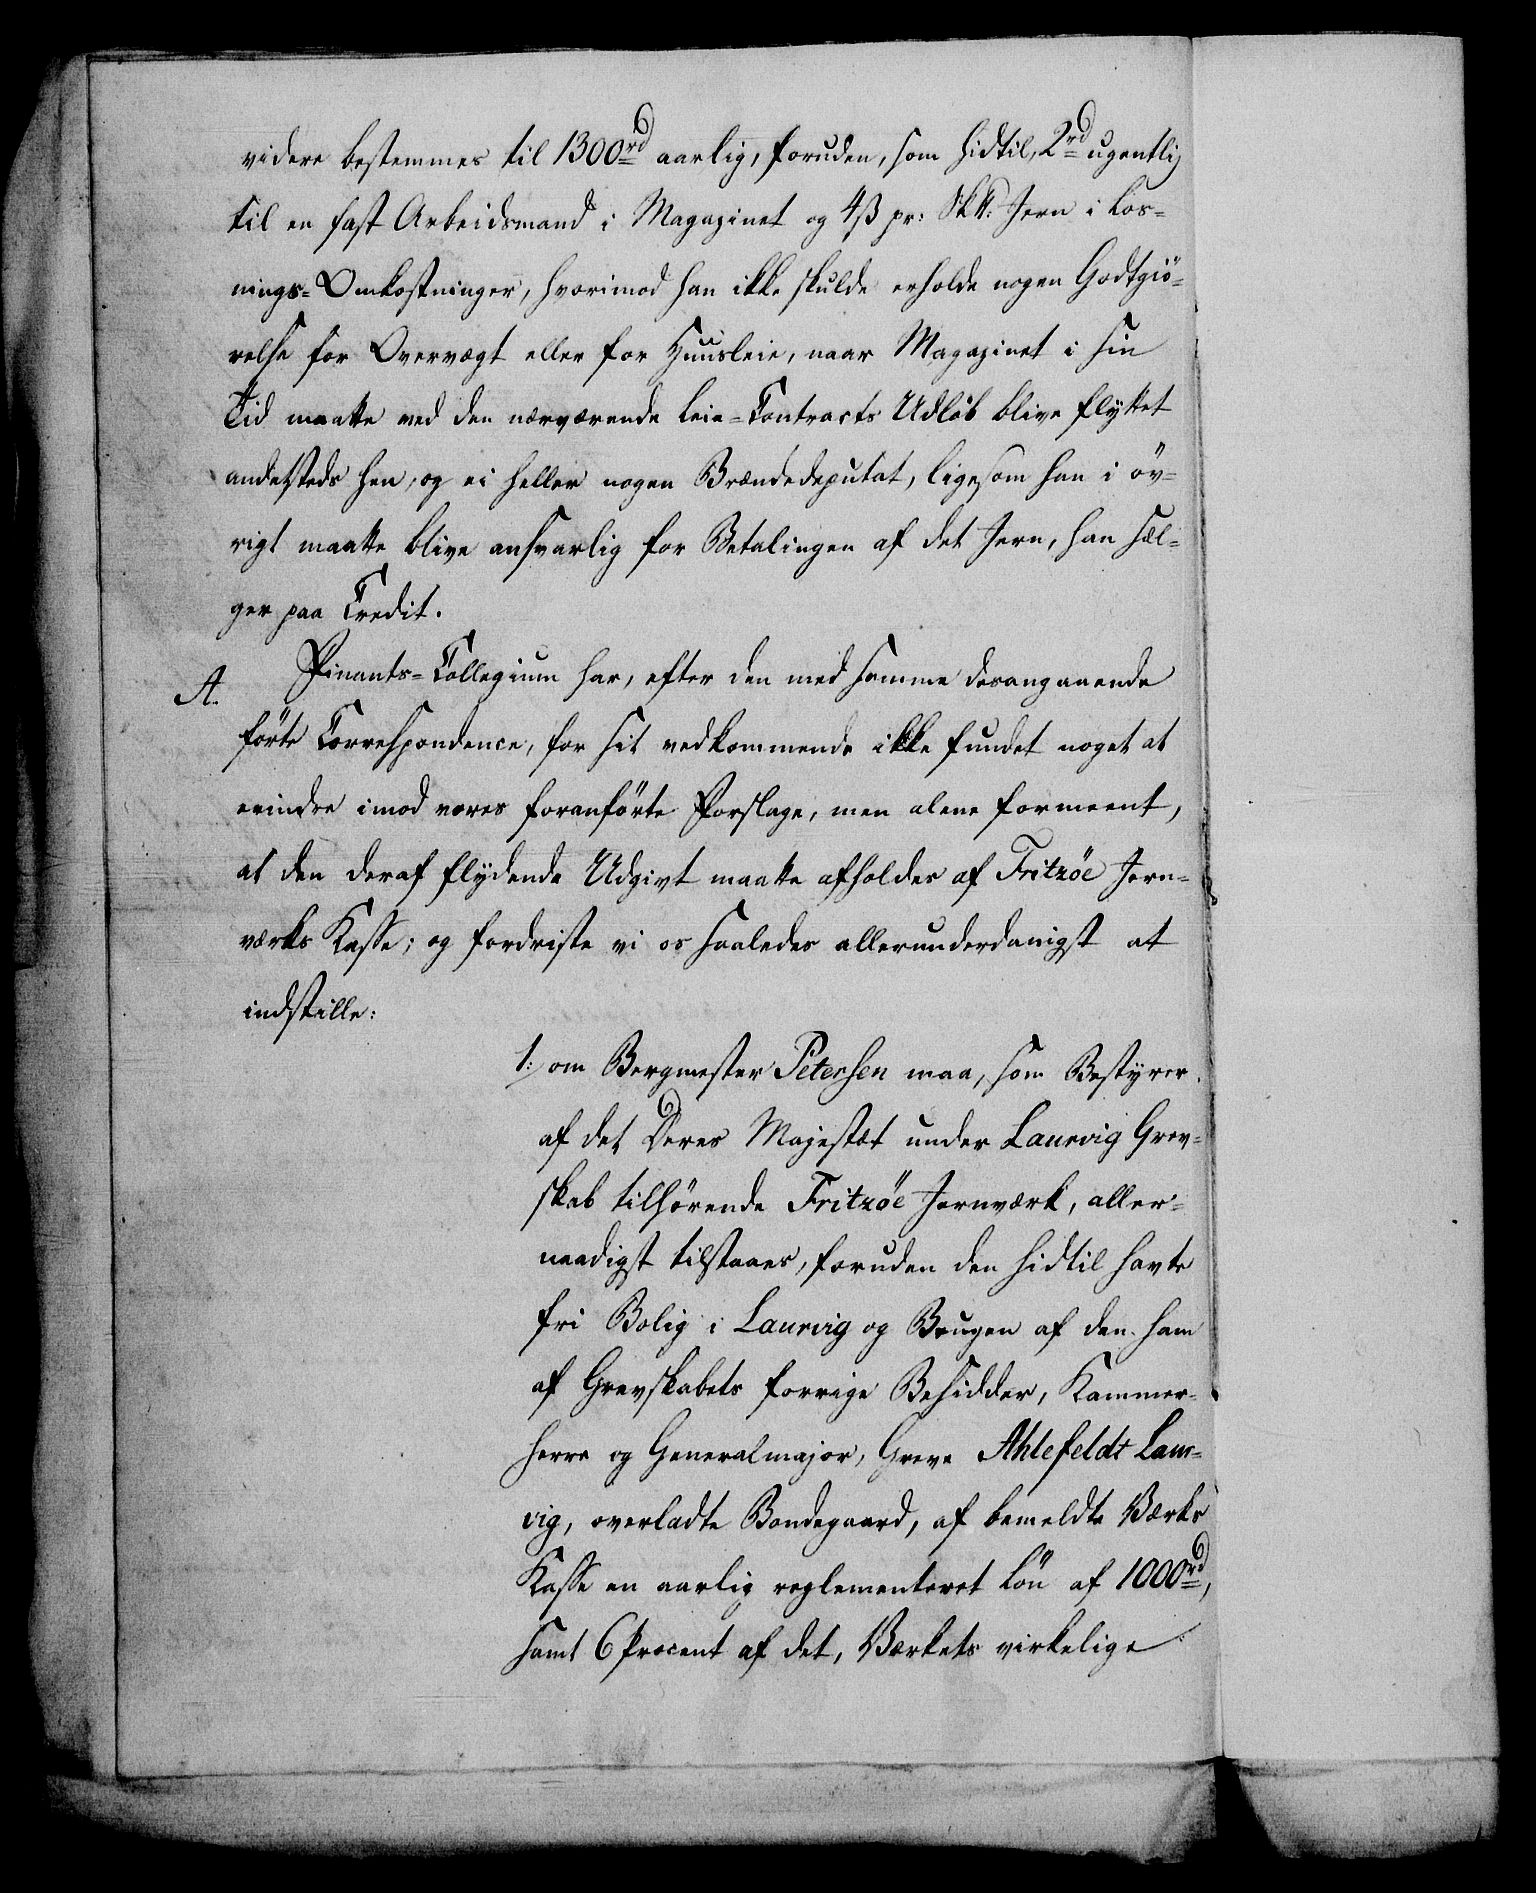 videre bestemmes til 1300rd aarlig, foruden, som hidtil, 2rd ugentlig
til en fast Arbeidsmand i Magazinet og 4ß pr: Sk℔: Jern i Los-
nings-Omkostninger, hvorimod han ikke skulde erholde nogen Godtgiö-
relse for Overvægt eller for Huusleie, naar Magazinet i sin
Tid maatte ved den nærværende Leie-Contracts Udløb blive flyttet
andetsteds hen, og ei heller nogen Brændedeputat, ligesom han i öv-
rigt maatte blive ansvarlig for Betalingen af det Jern, han sæl-
ger paa Credit.
A. Finants-Collegium har, efter den med samme desangaaende
förte Correspondence, for sit vedkommende ikke fundet noget at
erindre imod vores foranförte Forslage, men alene formeent,
at den deraf flydende Udgivt maatte afholdes af Fritzöe Jern-
værks Kasse; og fordriste vi os saaledes allerunderdanigst at
indstille:
1: om Bergmester Petersen maa, som Bestyrer
af det Deres Majestæt under Laurvig Grev-
skab tilhörende Fritzöe Jernværk, aller-
naadigst tilstaaes, foruden den hidtil havte
fri Bolig i Laurvig og Brugen af den ham
af Grevskabets forrige Besidder, Kammer-
herre og Generalmajor, Greve Ahlefeldt Laur-
vig, overladte Bondegaard, af bemeldte Værks
Kasse en aarlig reglementeret Lön af 1000rd,
samt 6 Procent af det, Værkets virkelige